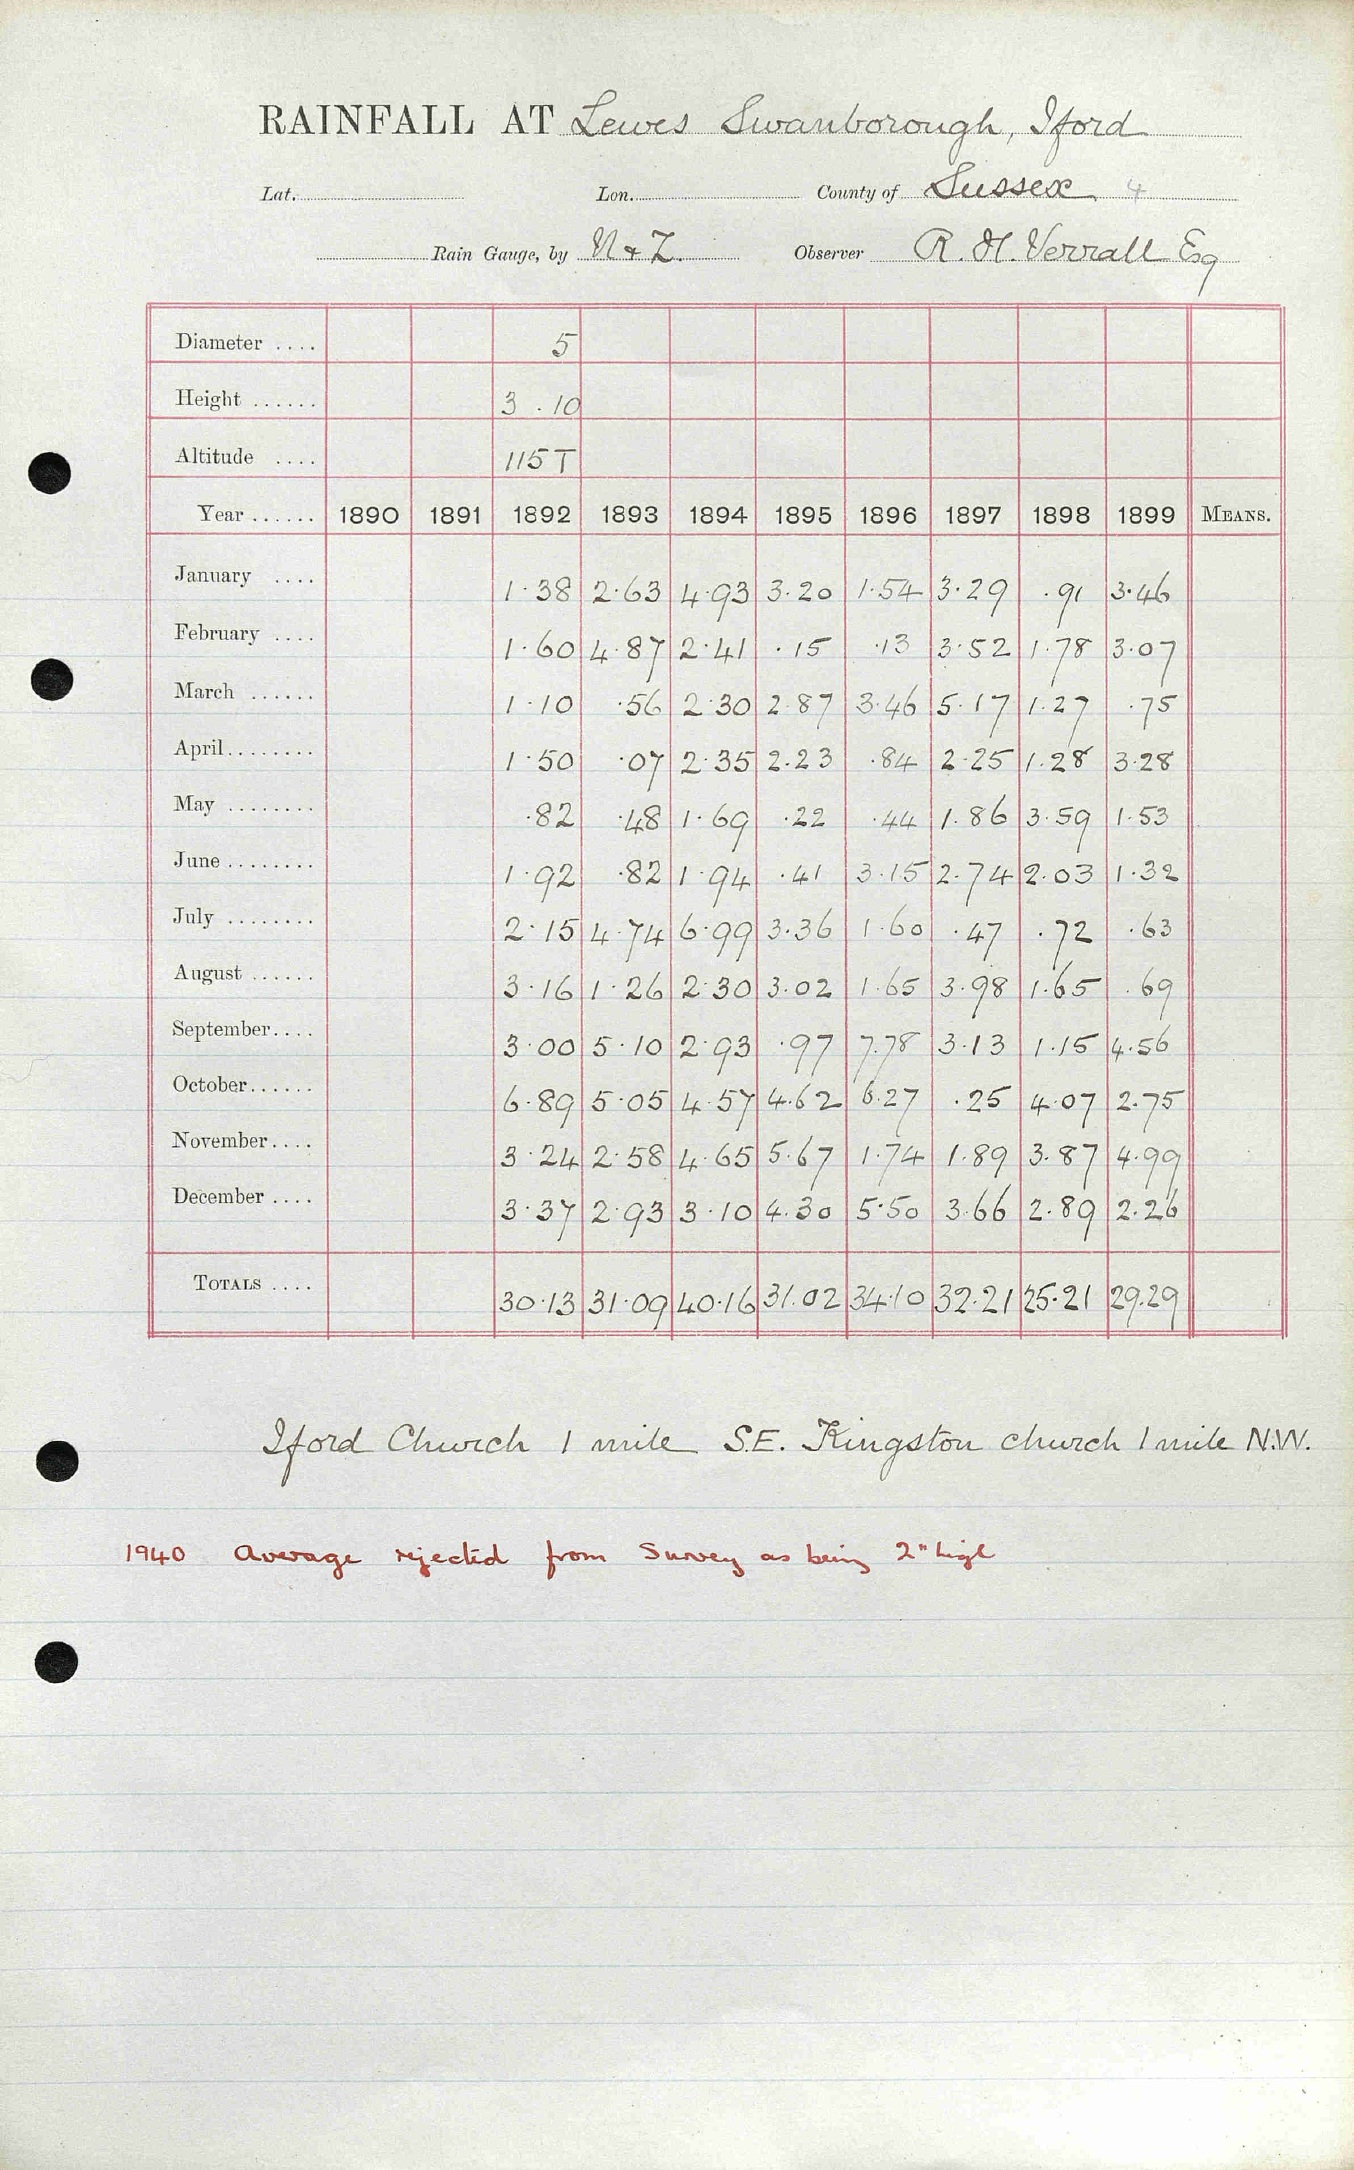 RAINFALL AT Lewes Swanborough, Iford
Lat. Lon. County of Sussex 4
Rain Gauge, by N & Z. Observer R. H. Verrall Esq
Diameter .... 5
Height ...... 3 . 10
Altitude .... 115 T
Year ...... 1890 1891 1892 1893 1894 1895 1896 1897 1898 1899 MEANS.
January .... 1.38 2.63 4.93 3.20 1.54 3.29 .91 3.46
February .... 1.60 4.87 2.41 .15 .13 3.52 1.78 3.07
March ...... 1.10 .56 2.30 2.87 3.46 5.17 1.27 .75
April........ 1.50 .07 2.35 2.23 .84 2.25 1.28 3.28
May ........ .82 .48 1.69 .22 .44 1.86 3.59 1.53
June ........ 1.92 .82 1.94 .41 3.15 2.74 2.03 1.32
July ........ 2.15 4.74 6.99 3.36 1.60 .47 .72 .63
August ...... 3.16 1.26 2.30 3.02 1.65 3.98 1.65 .69
September.... 3.00 5.10 2.93 .97 7.78 3.13 1.15 4.56
October...... 6.89 5.05 4.57 4.62 6.27 .25 4.07 2.75
November.... 3.24 2.58 4.65 5.67 1.74 1.89 3.87 4.99
December .... 3.37 2.93 3.10 4.30 5.50 3.66 2.89 2.26
TOTALS .... 30.13 31.09 40.16 31.02 34.10 32.21 25.21 29.29
Iford Church 1 mile S.E. Kingston church 1 mile N.W.
1940 Average rejected from Survey as being 2" high